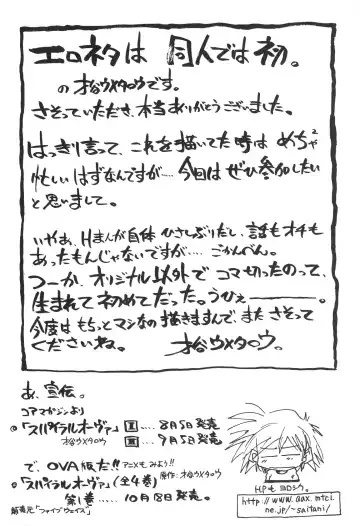 エロネタは 同人では初。
の 才谷ウメタロウです。
さそっていただき、本当ありがとうございました。
はっきり言って、これを描いてた時は めちゃ2
忙しいはずなんですが‥‥今回はぜひ参加したい
と思いまして。
いやぁ、Hまんが自体 ひさしぶりだし、話もオチも
あったもんじゃないですが‥‥ごかんべん。
つーか、オリジナル以外で コマ切ったのって、
生まれて初めてだった。うひぇ―――。
今度はもちっとマシなの描きますんで、また さそって
くださいね。 才谷ウメタロウ。
あ、宣伝。
コアマガジンより
◎「スパイラルオーヴァ」Ⅱ‥‥8月5日発売
才谷ウメタロウ Ⅲ‥‥9月5日発売
で、OVA版だ!! アニメも みよう!!
◎「スパイラルオーヴァ」(全4巻) 原作:才谷ウメタロウ
第1巻‥‥10月8日発売
販売元「ファイブウェイズ」
HPも ヨロシク。
http://www.aax.mtci.
ne.jp/~saitani/